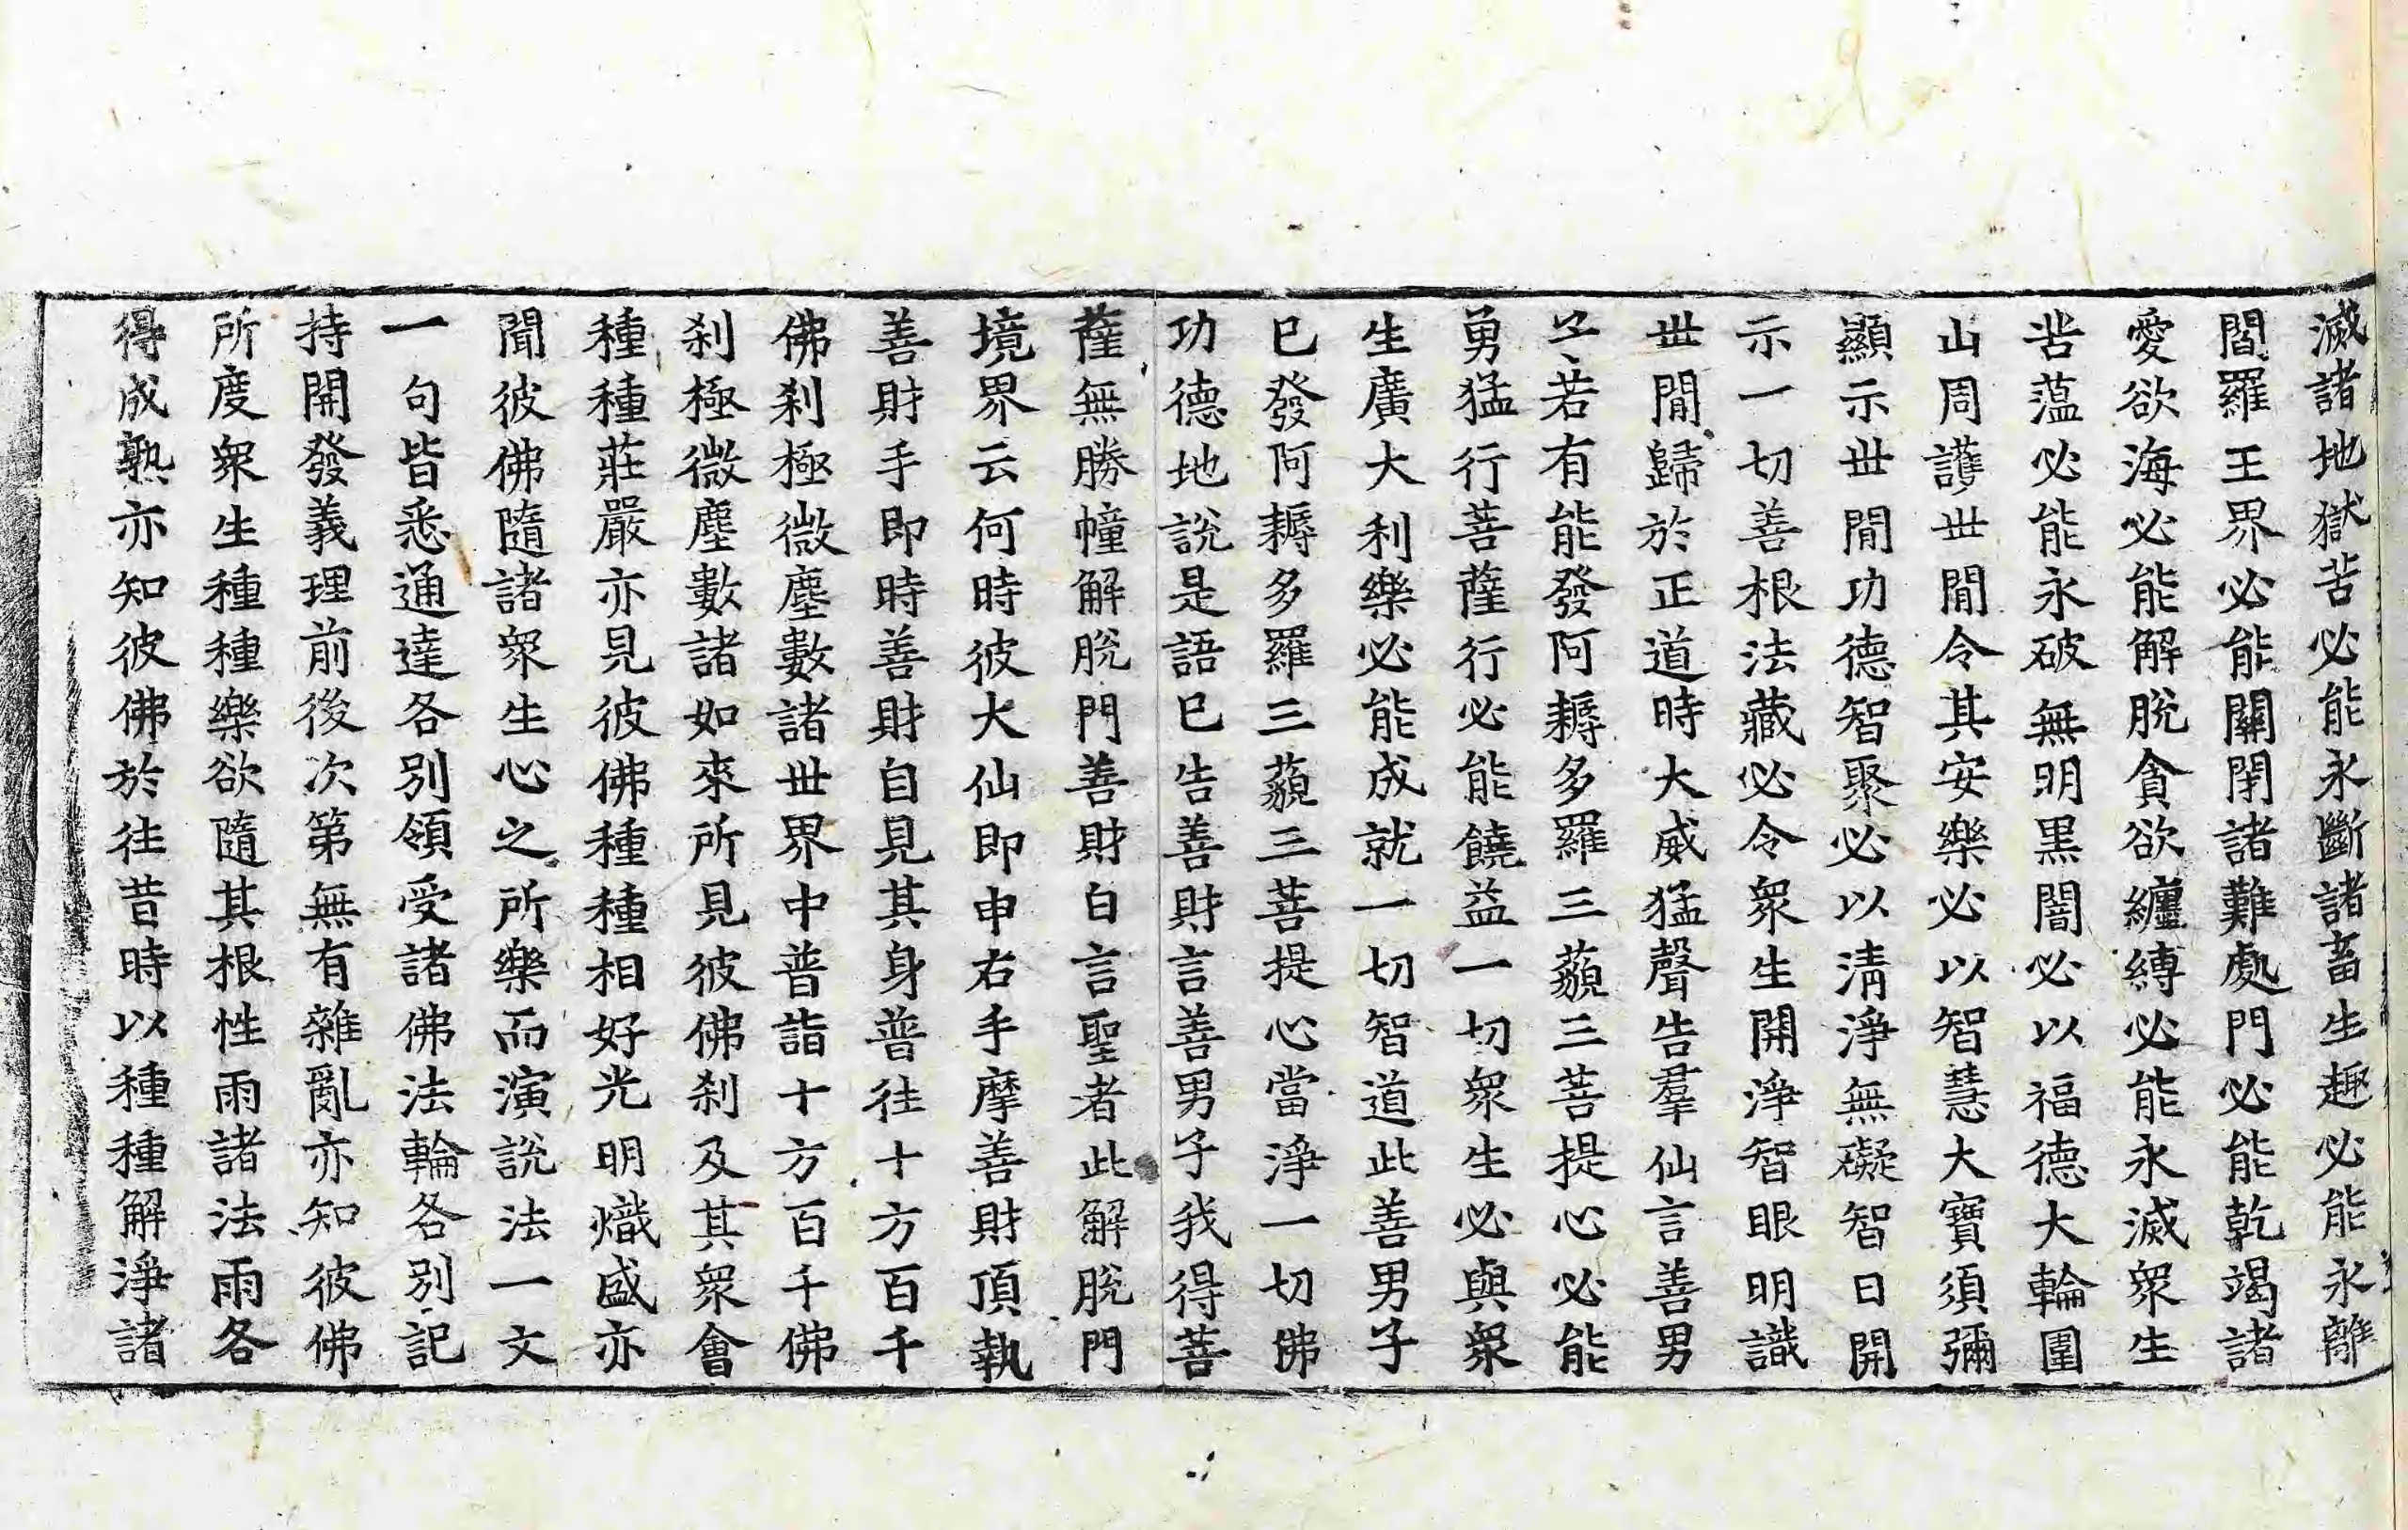 滅諸地獄苦必能永斷諸畜生趣必能永離
閻羅王界必能關閉諸難處門必能乾竭諸
愛欲海必能解脫貪欲纏縛必能永滅衆生
苦薀必能永破無明黑闇必以福德大輪圍
山周護世間令其安樂必以智慧大寶須彌
顯示世間功德智聚必以淸淨無礙智日開
示一切善根法藏必令衆生開淨智眼明識
世間歸於正道時大威猛聲告羣仙言善男
子若有能發阿耨多羅三藐三菩提心必能
勇猛行菩薩行必能饒益一切衆生必與衆
生廣大利樂必能成就一切智道此善男子
已發阿耨多羅三藐三菩提心當淨一切佛
功德地說是語已告善財言善男子我得菩
薩無勝幢解脫門善財白言聖者此解脫門
境界云何時彼大仙即申右手摩善財頂執
善財手即時善財自見其身普往十方百千
佛刹極微塵數諸世界中普詣十方百千佛
刹極微塵數諸如來所見彼佛刹及其衆會
種種莊嚴亦見彼佛種種相好光明熾盛亦
聞彼佛隨諸衆生心之所樂而演說法一文
一句皆悉通達各別領受諸佛法輪各別記
持開發義理前後次第無有雜亂亦知彼佛
所度衆生種種樂欲隨其根性雨諸法雨各
得成熟亦知彼佛於往昔時以種種解淨諸